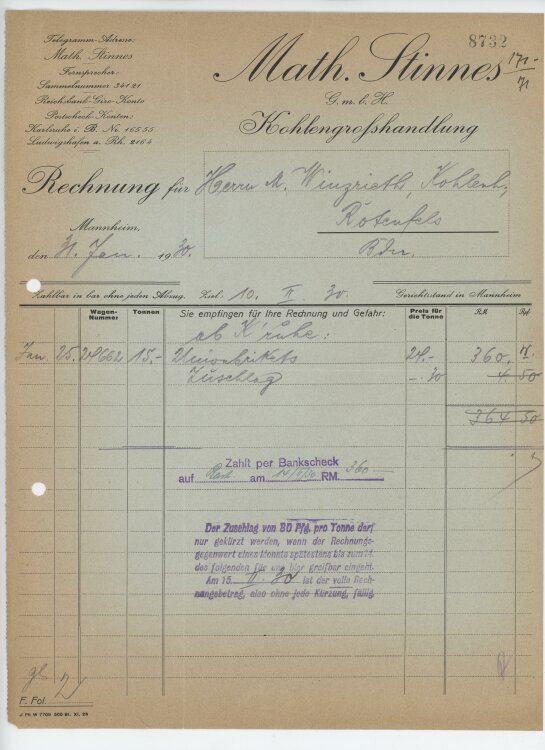 Telegramm-Adresse:
Math. Stinnes
Fernsprecher-
Sammelnummer 34121
Reichsbank-Giro-Konto
Postscheck-Konten:
Karlsruhe i. B. No. 16555
Ludwigshafen a. Rh. 2164
8732
171-
71
Math. Stinnes
G. m. b. H.
Kohlengroßhandlung
Rechnung für Herrn M. Winzrieth, Kohlenh,
Rotenfels
Bdn.
Mannheim,
den 31. Jan. 1930.
Zahlbar in bar ohne jeden Abzug. Ziel: 10. II. 30. Gerichtstand in Mannheim
Wagen-Nummer Tonnen Sie empfingen für Ihre Rechnung und Gefahr: Preis für die Tonne RM. Pf.
ab K'ruhe:
Jan 25. 24662 15.- Unionbrikets 24.- 360.
Zuschlag -.30 4 50
364 50
Zahlt per Bankscheck
auf am 14/2/30 RM. 360.-
Der Zuschlag von 30 Pfg. pro Tonne darf
nur gekürzt werden, wenn der Rechnungs-
gegenwert eines Monats spätestens bis zum 14.
des folgenden für uns hier greifbar eingeht.
Am 15. II. 30 ist der volle Rech-
nungsbetrag, also ohne jede Kürzung, fällig.
F. Fol.
J. Ph. W 7709 500 Bl. XI. 28